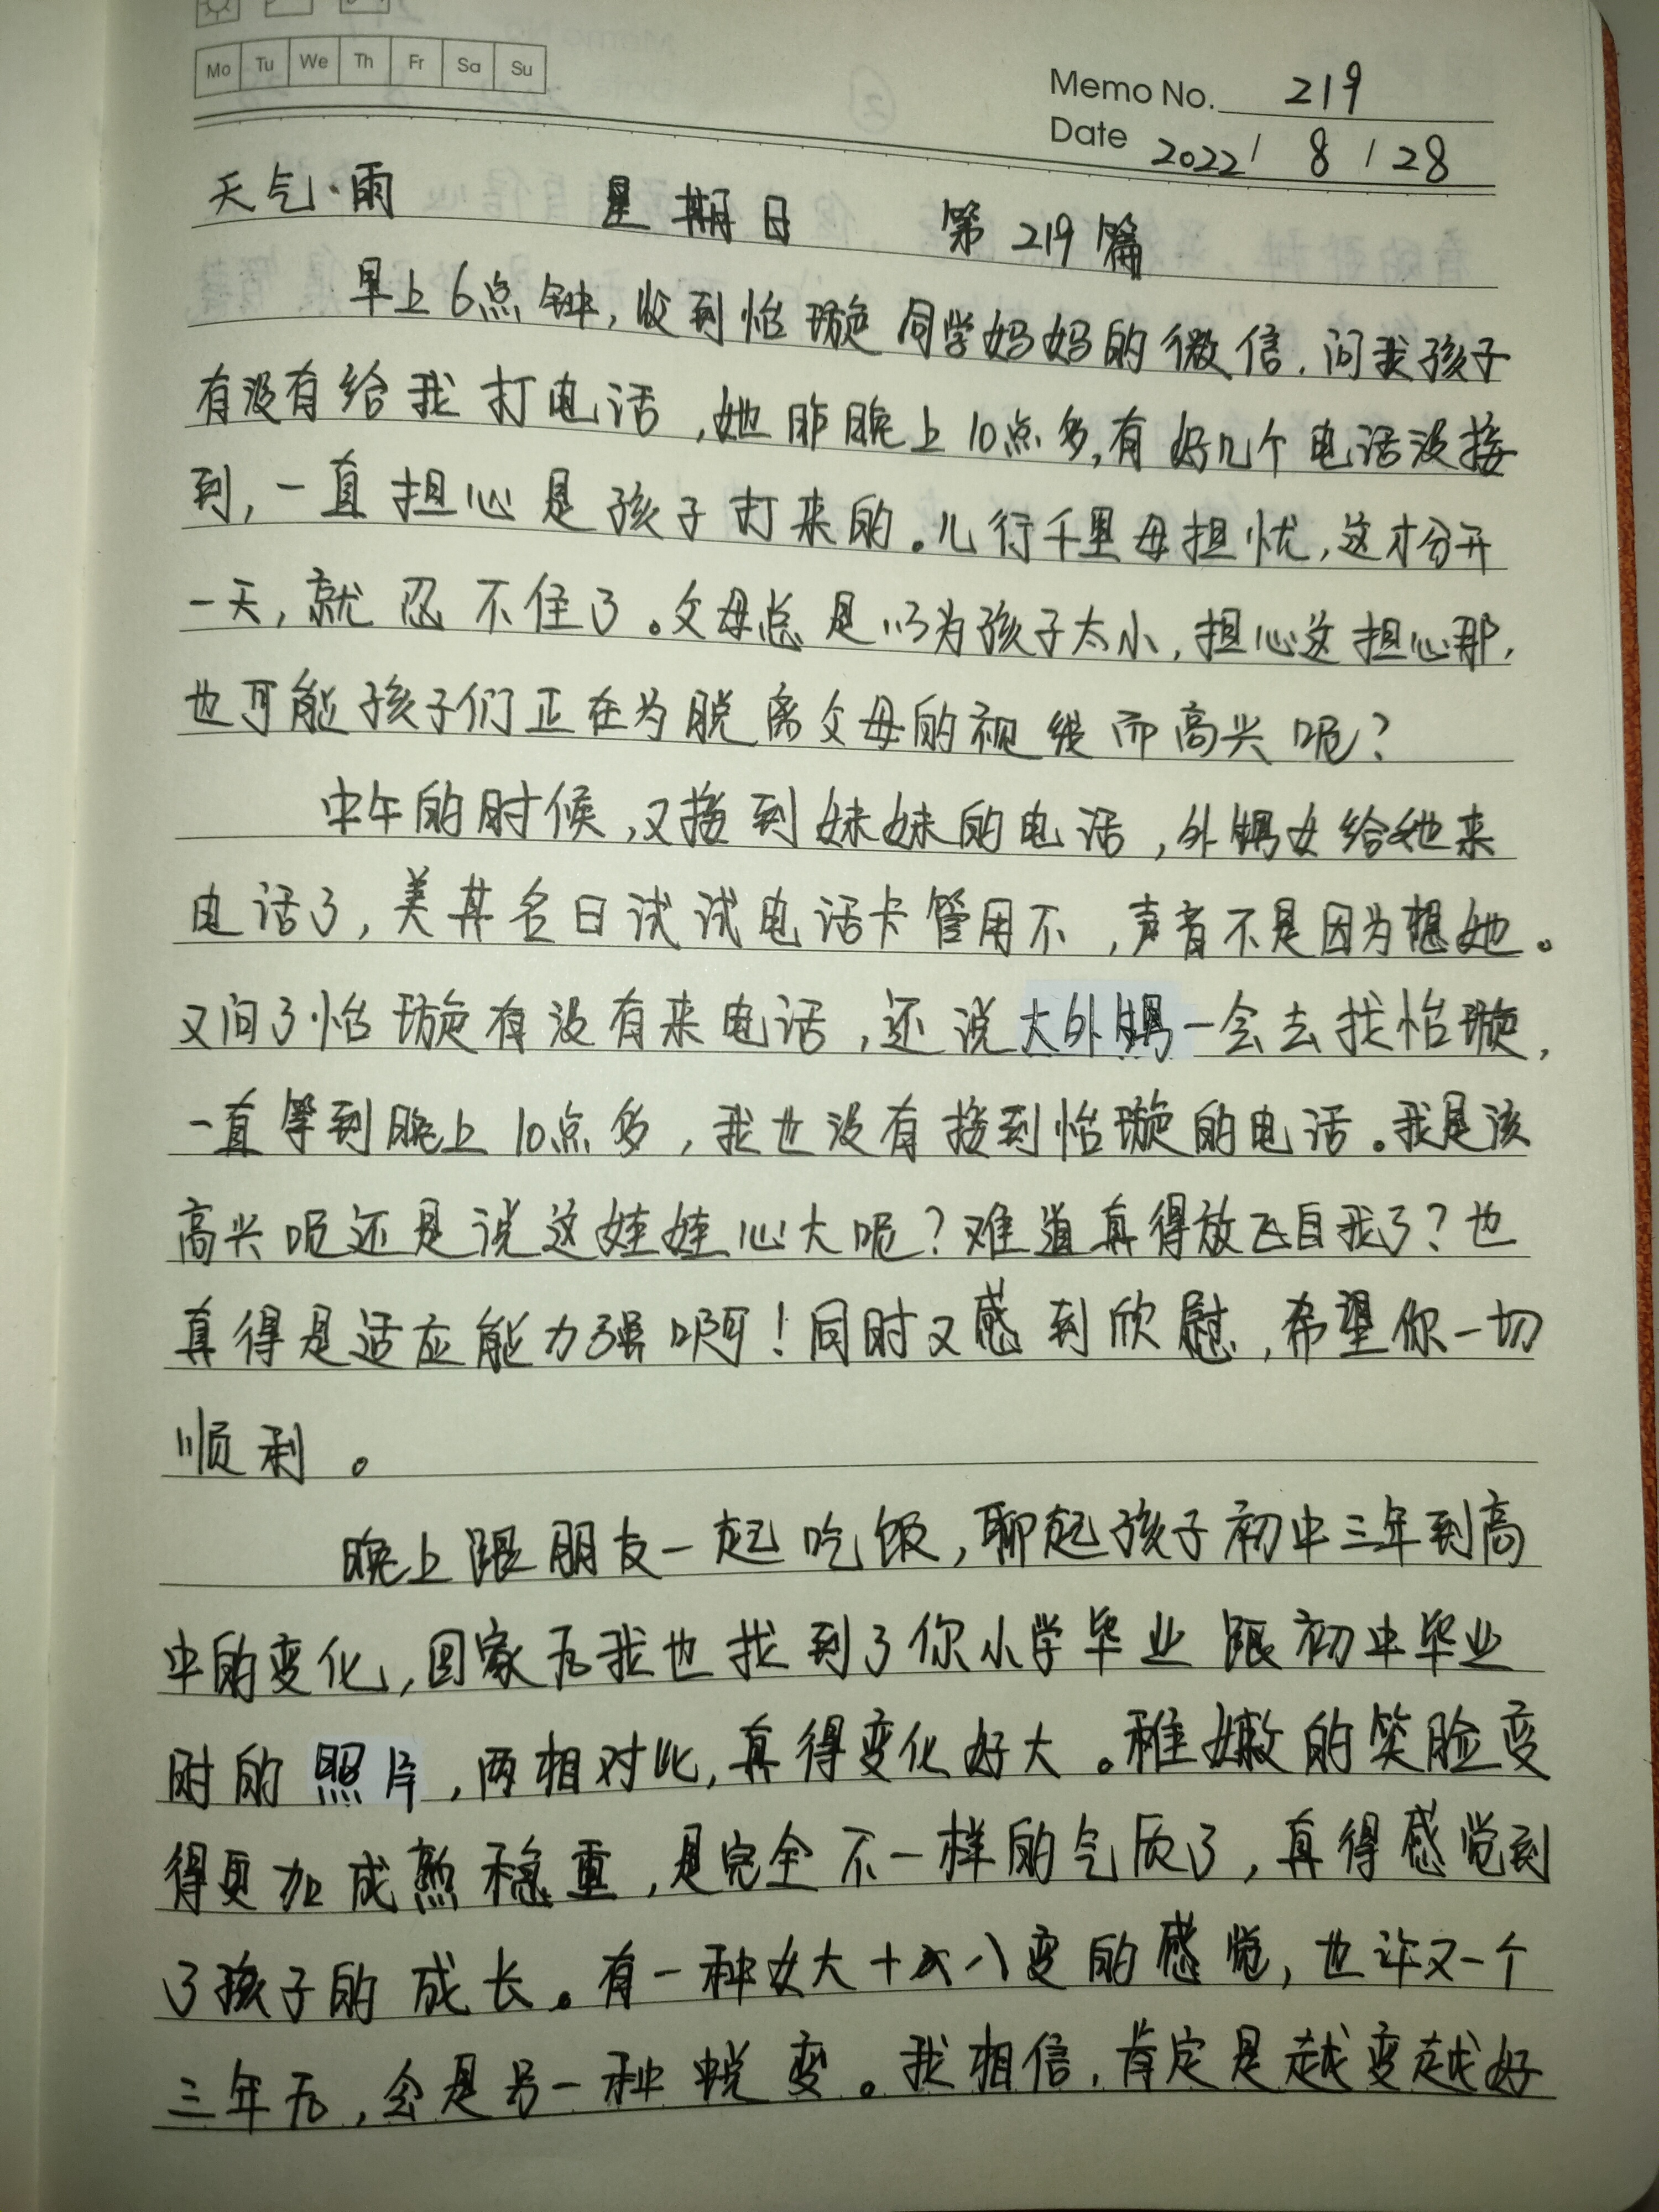 Mo Tu We Th Fr Sa Su
Memo No. 219
Date 2022/ 8 / 28
天气·雨 星期日 第219篇
早上6点钟,收到怡璇同学妈妈的微信,问我孩子
有没有给我打电话,她昨晚上10点多,有好几个电话没接
到,一直担心是孩子打来的。儿行千里母担忧,这才分开
一天,就忍不住了。父母总是以为孩子太小,担心这担心那,
也可能孩子们正在为脱离父母的视线而高兴呢?
中午的时候,又接到妹妹的电话,外甥女给她来
电话了,美其名曰试试电话卡管用不,声音不是因为想她。
又问了怡璇有没有来电话,还说大外甥一会去找怡璇,
一直等到晚上10点多,我也没有接到怡璇的电话。我是该
高兴呢还是说这娃娃心大呢?难道真得放飞自我了?也
真得是适应能力强啊!同时又感到欣慰,希望你一切
顺利。
晚上跟朋友一起吃饭,聊起孩子初中三年到高
中的变化,回家后我也找到了你小学毕业跟初中毕业
时的照片,两相对比,真得变化好大。稚嫩的笑脸变
得更加成熟稳重,是完全不一样的气质了,真得感觉到
了孩子的成长。有一种女大十八变的感觉,也许又一个
三年后,会是另一种蜕变。我相信,肯定是越变越好